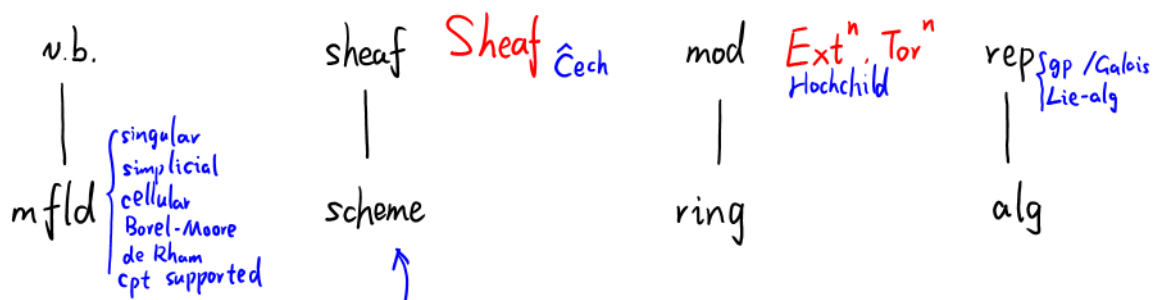 v.b.
sheaf Sheaf Ĉech
mod Extⁿ, Torⁿ
Hochchild
rep gp / Galois
Lie-alg
mfld
singular
simplicial
cellular
Borel-Moore
de Rham
cpt supported
scheme
ring
alg